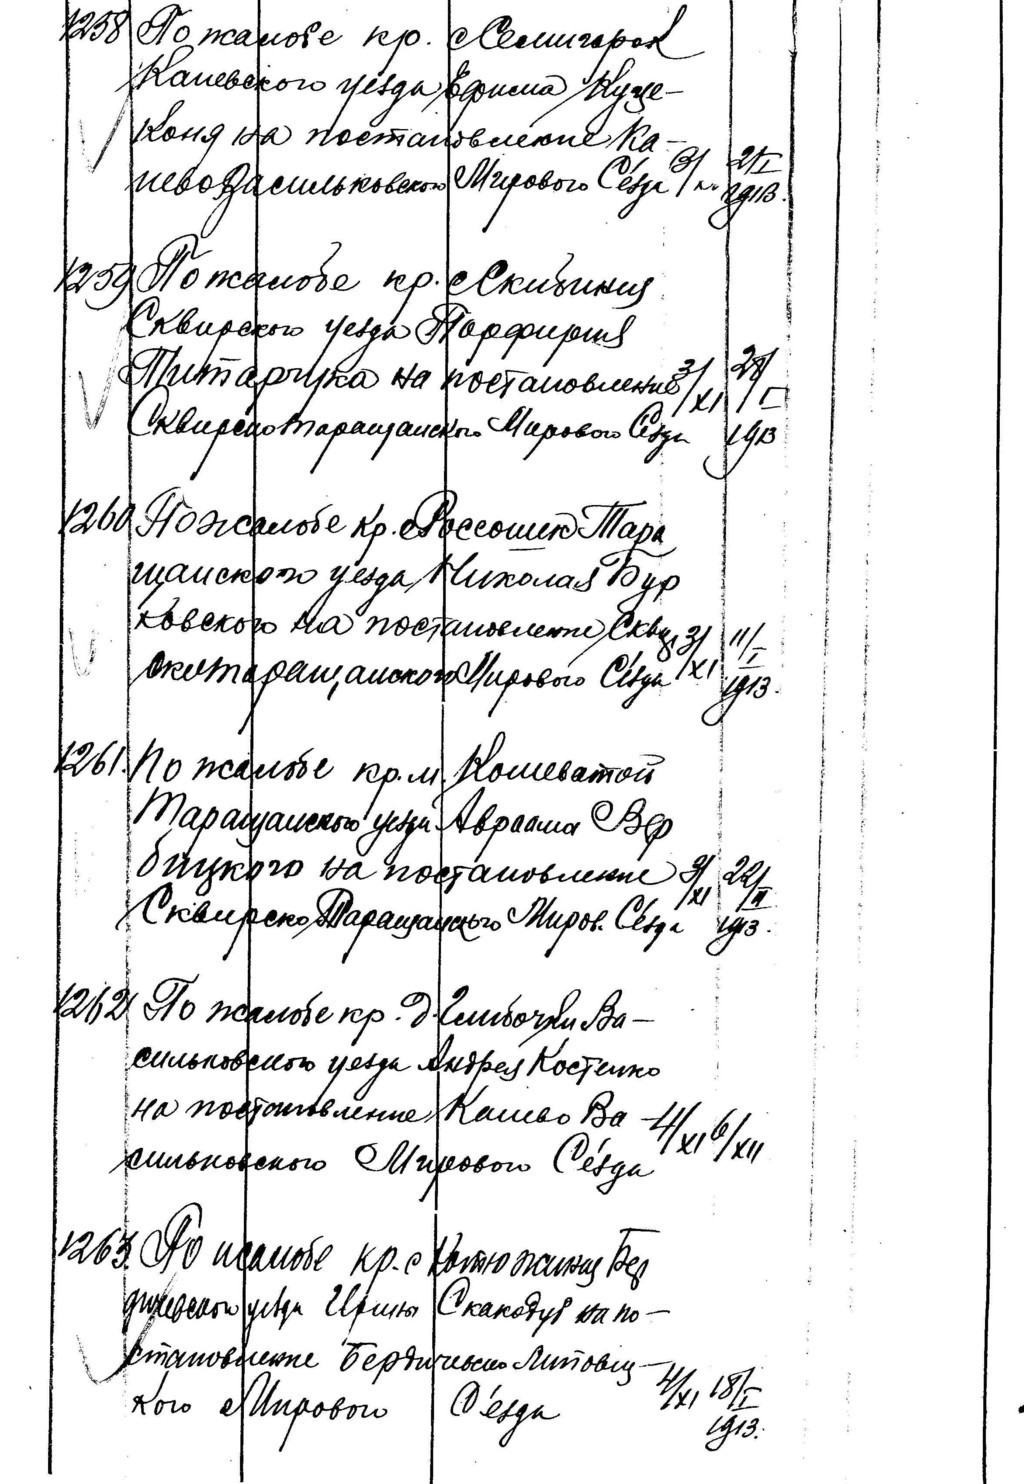 1258 По жалобе кр. с Семигорок
Каневского уезда Ефима Куце-
коня на постановление Ка-
невоВасильковского Мирового Сезда 3/ 21/I 1913.
1259 По жалобе кр. с Скибинец
Сквирского уезда Порфирия
Титарчука на постановление 3/XI 28/I
СквирскоТаращанского Мирового Сезда 1913
1260 По жалобе кр. с Россошек Тара
щанского уезда Николая Бур
ковского на постановление Сквир 3/XI 11/I
скоТаращанского Мирового Сезда 1913.
1261. По жалобе кр. м. Кошеватой
Таращанского уезда Авраама Вер
бицкого на постановление 3/XI 22/II
Сквирско Таращанского Миров. Сезда 1913.
1262 По жалобе кр. д. Глибочки Ва-
сильковского уезда Андрея Костенко
на постановление Канево Ва- 4/XI 6/XII
сильковского Мирового Сезда
1263. По жалобе кр. с Котюжинец Бер
дичевского уезда Ирины Скакодуб на по-
становление Бердичевско Липовец-
кого Мирового Сезда 4/XI 18/I
1913.